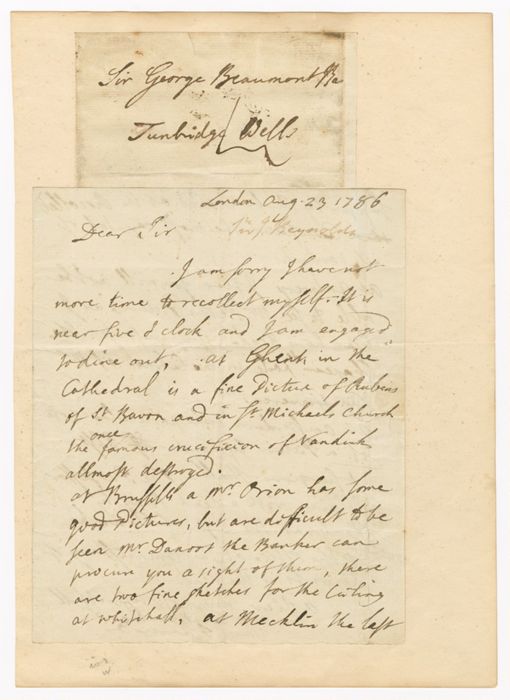 Sir George Beaumont Ba
Tunbridge Wells
London Aug. 23 1786
Sir J. Reynolds
Dear Sir
I am sorry I have not
more time to recollect myself. It is
near five o clock and I am engaged
to dine out, at Ghent in the
Cathedral is a fine Picture of Rubens
of St. Bavon and in St. Michaels Church
once
the famous crucificion of Vandick
allmost destroyed.
at Brussels a Mr. Orion has some
good Pictures, but are difficult to be
seen Mr. Danoot the Banker can
procure you a sight of them, there
are two fine sketches for the Cieling
at whitehall, at Mecklin the last